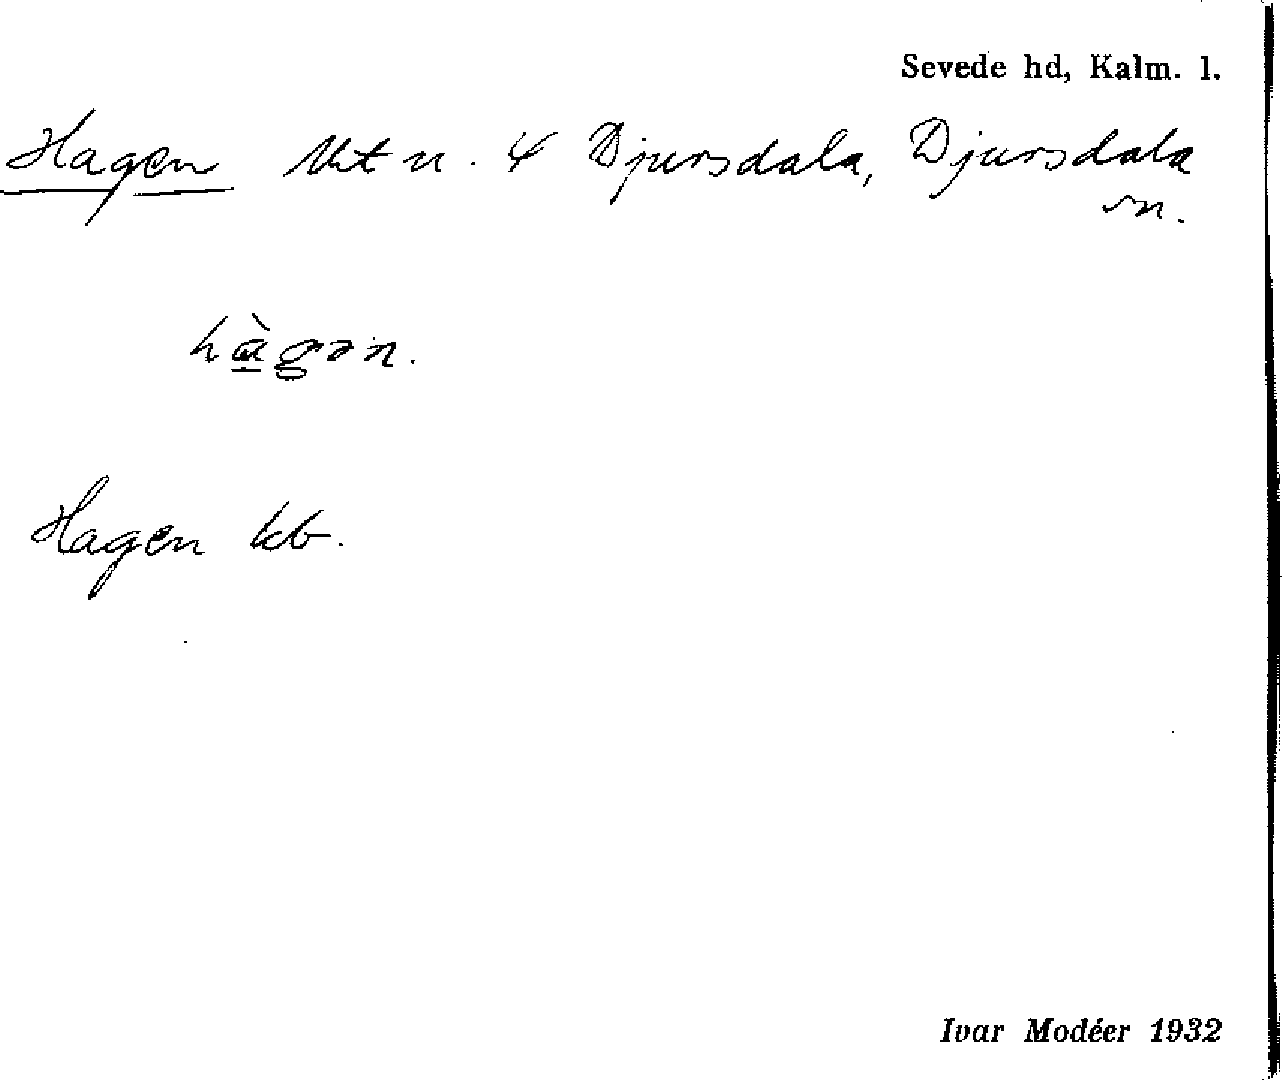 Sevede hd, Kalm. l.
Hagen Ut n. 4 Djursdala, Djursdala
sn.
hàgən.
Hagen kb.
Ivar Modéer 1932